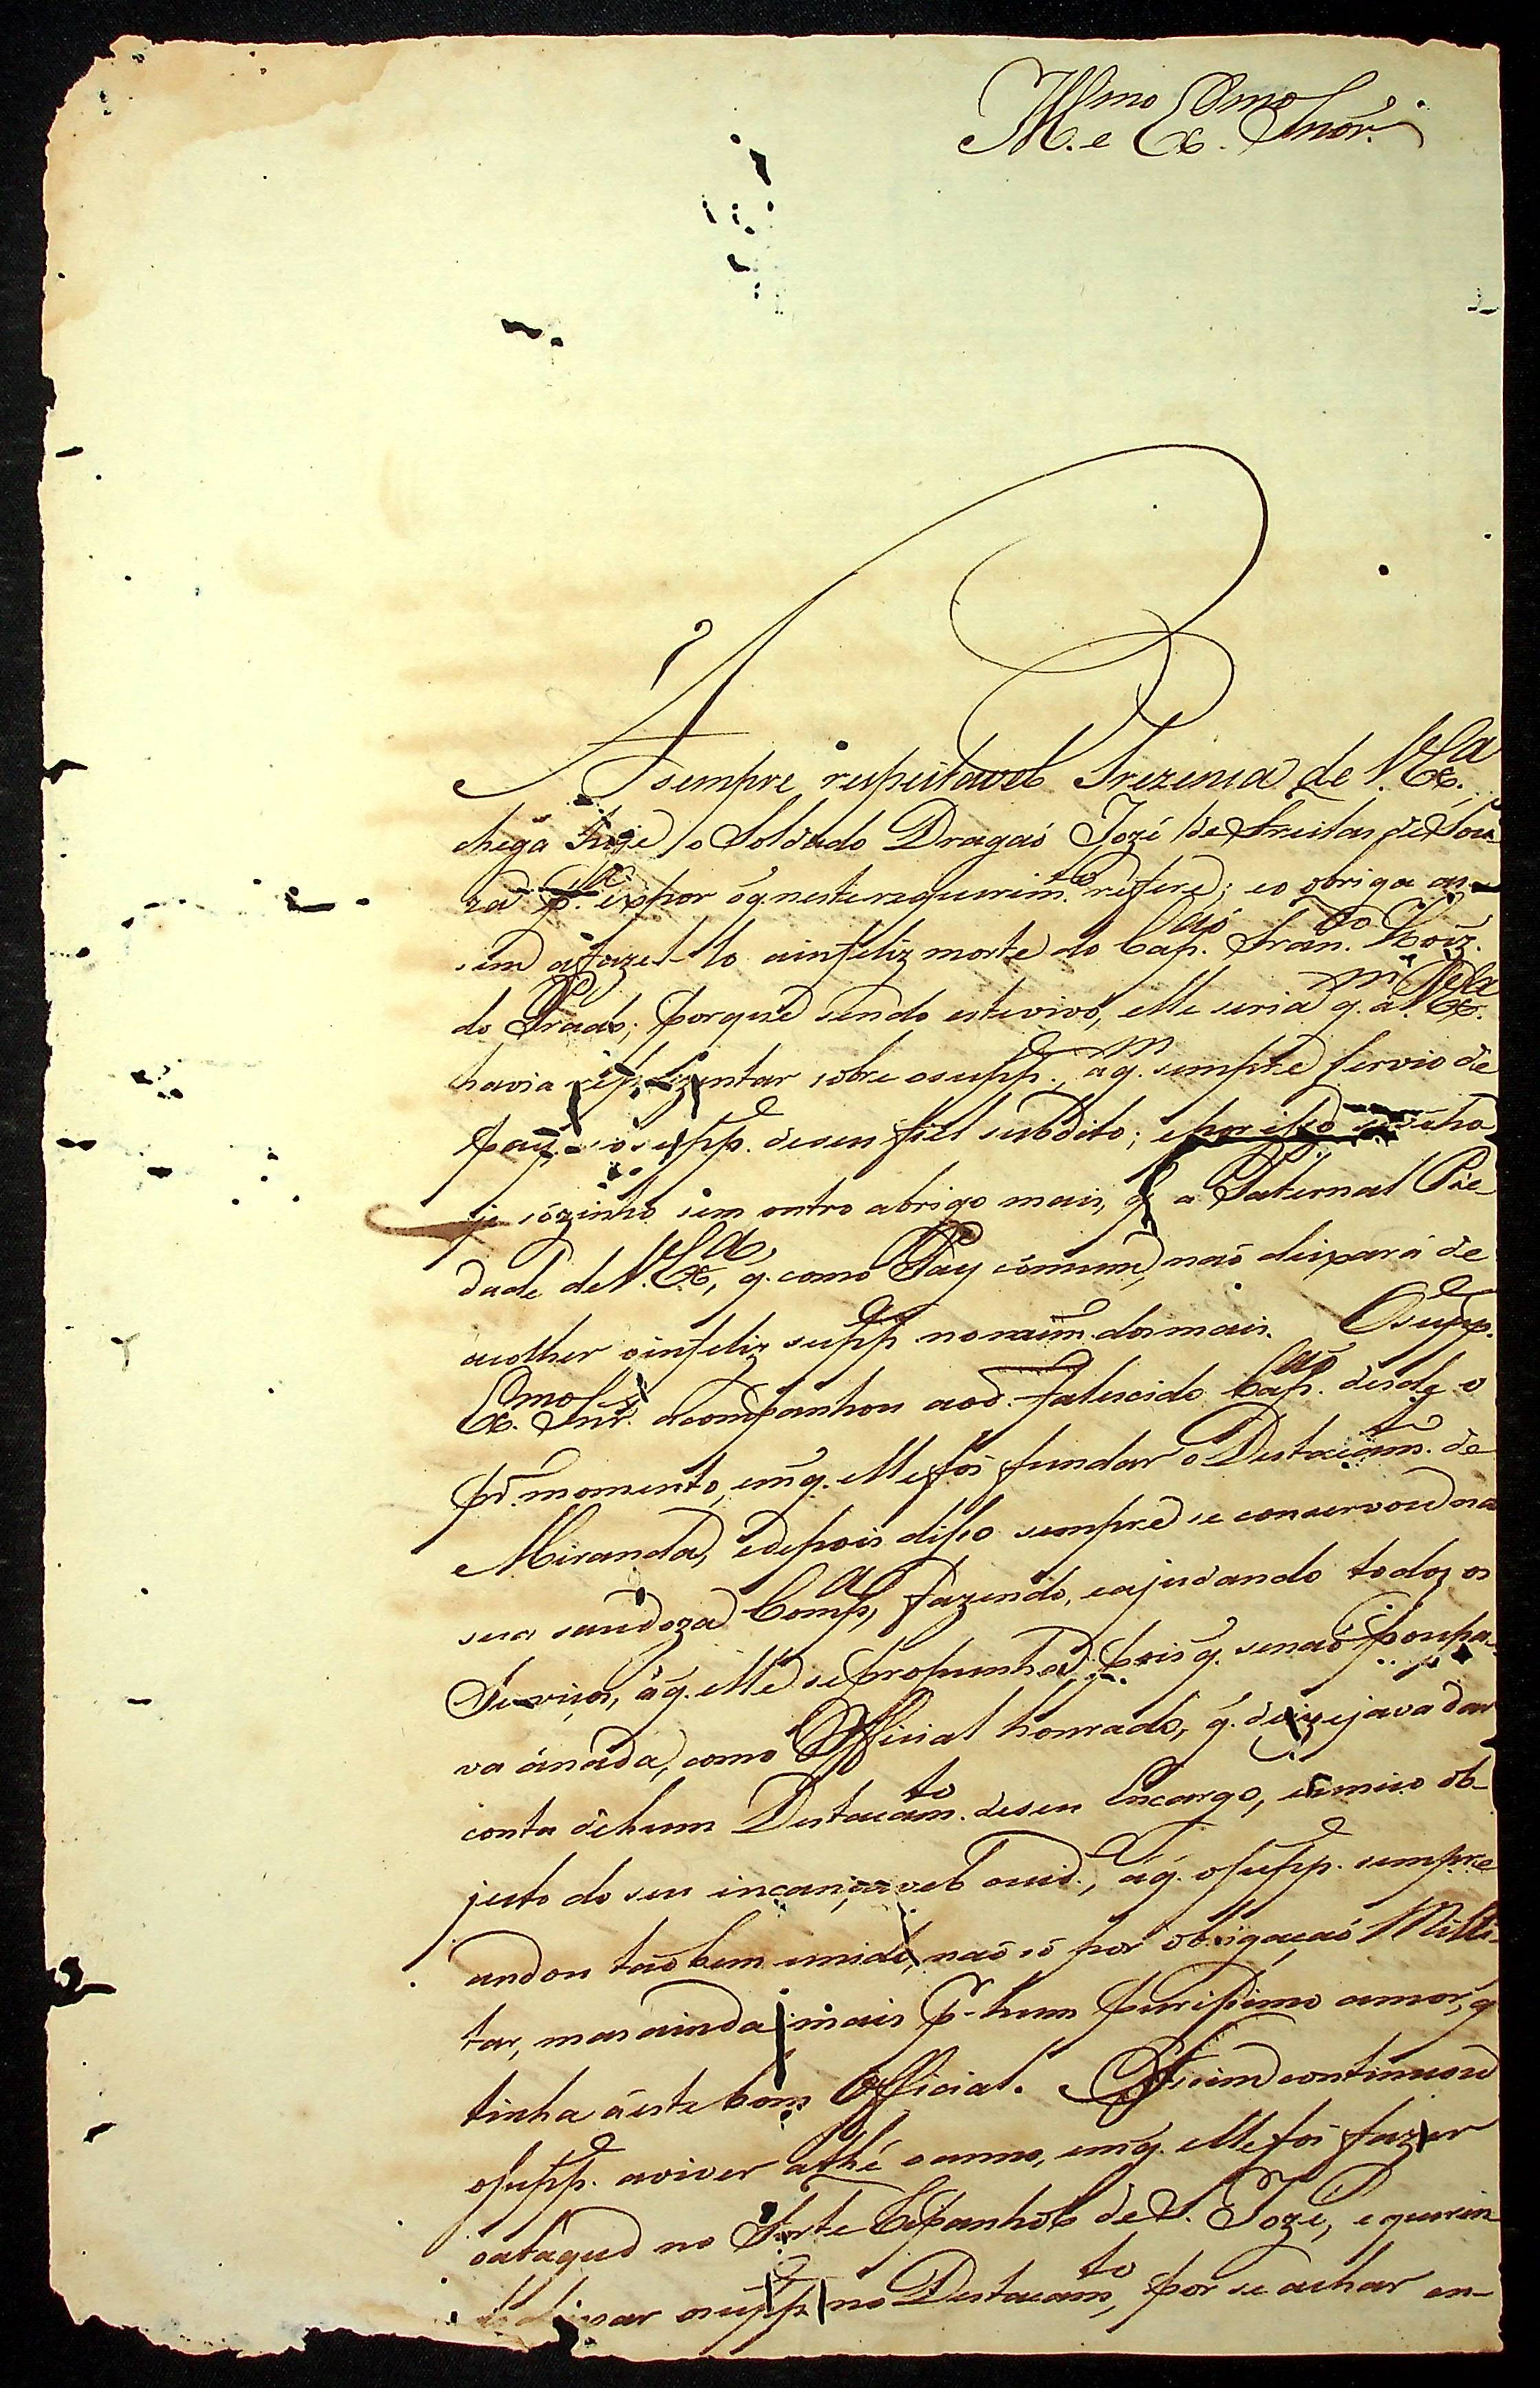 Ill.mo e Ex.mo Snõr.
A sempre respeitavel Prezensa de V. Ex.a
chega hoje o Soldado Dragaõ Jozé de Freitas de Sou-
za p.a expor o q̃ neste requerim.to refere; e o obriga as-
sim a fazel-lo a infeliz morte do Cap.aõ Fran.co Roiz.
do Prado; porque sendo este vivo, elle seria q.m a V. Ex.a
havia reprezentar sobre o supp.e, a q.m sempre servio de
Pay, e o supp.e de seu fiel subdito; e por isso se acha
je sózinho sem outro abrigo mais, q̃ a Paternal Pie-
dade de V. Ex.a, q. como Pay cómum, naõ deixará de
acolher o infeliz supp.e no num.o dos mais. O supp.e
Ex.mo Snr. acompanhou ao d.o falescido Cap.aõ desde o
pr.o momento, em q. elle foi fundar o Destacam.to de
Miranda, e depois disso sempre se conservou na
sua saudoza Comp.a, fazendo, e ajudando todos os
Serviços, á q. elle se propunha; pois q. se naõ poupa-
va á nada, como Official honrado, q. dezejava dar
conta de hum Destacam.to de seu Encargo, e unico ob-
jecto do seu incançavel cuid.o, á q. o supp.e sempre
andou taõ bem unido, naõ só por obrigaçaõ Mili-
tar, mas ainda mais p.r hum purissimo amor, q
tinha á este bom Official. Assim continuou
o supp.e a viver athé o anno, em q. elle foi fazer
o ataque no Forte Espanhol de S. Jozé, e querin
deixar o supp.e no Destacam.to, por se achar en-